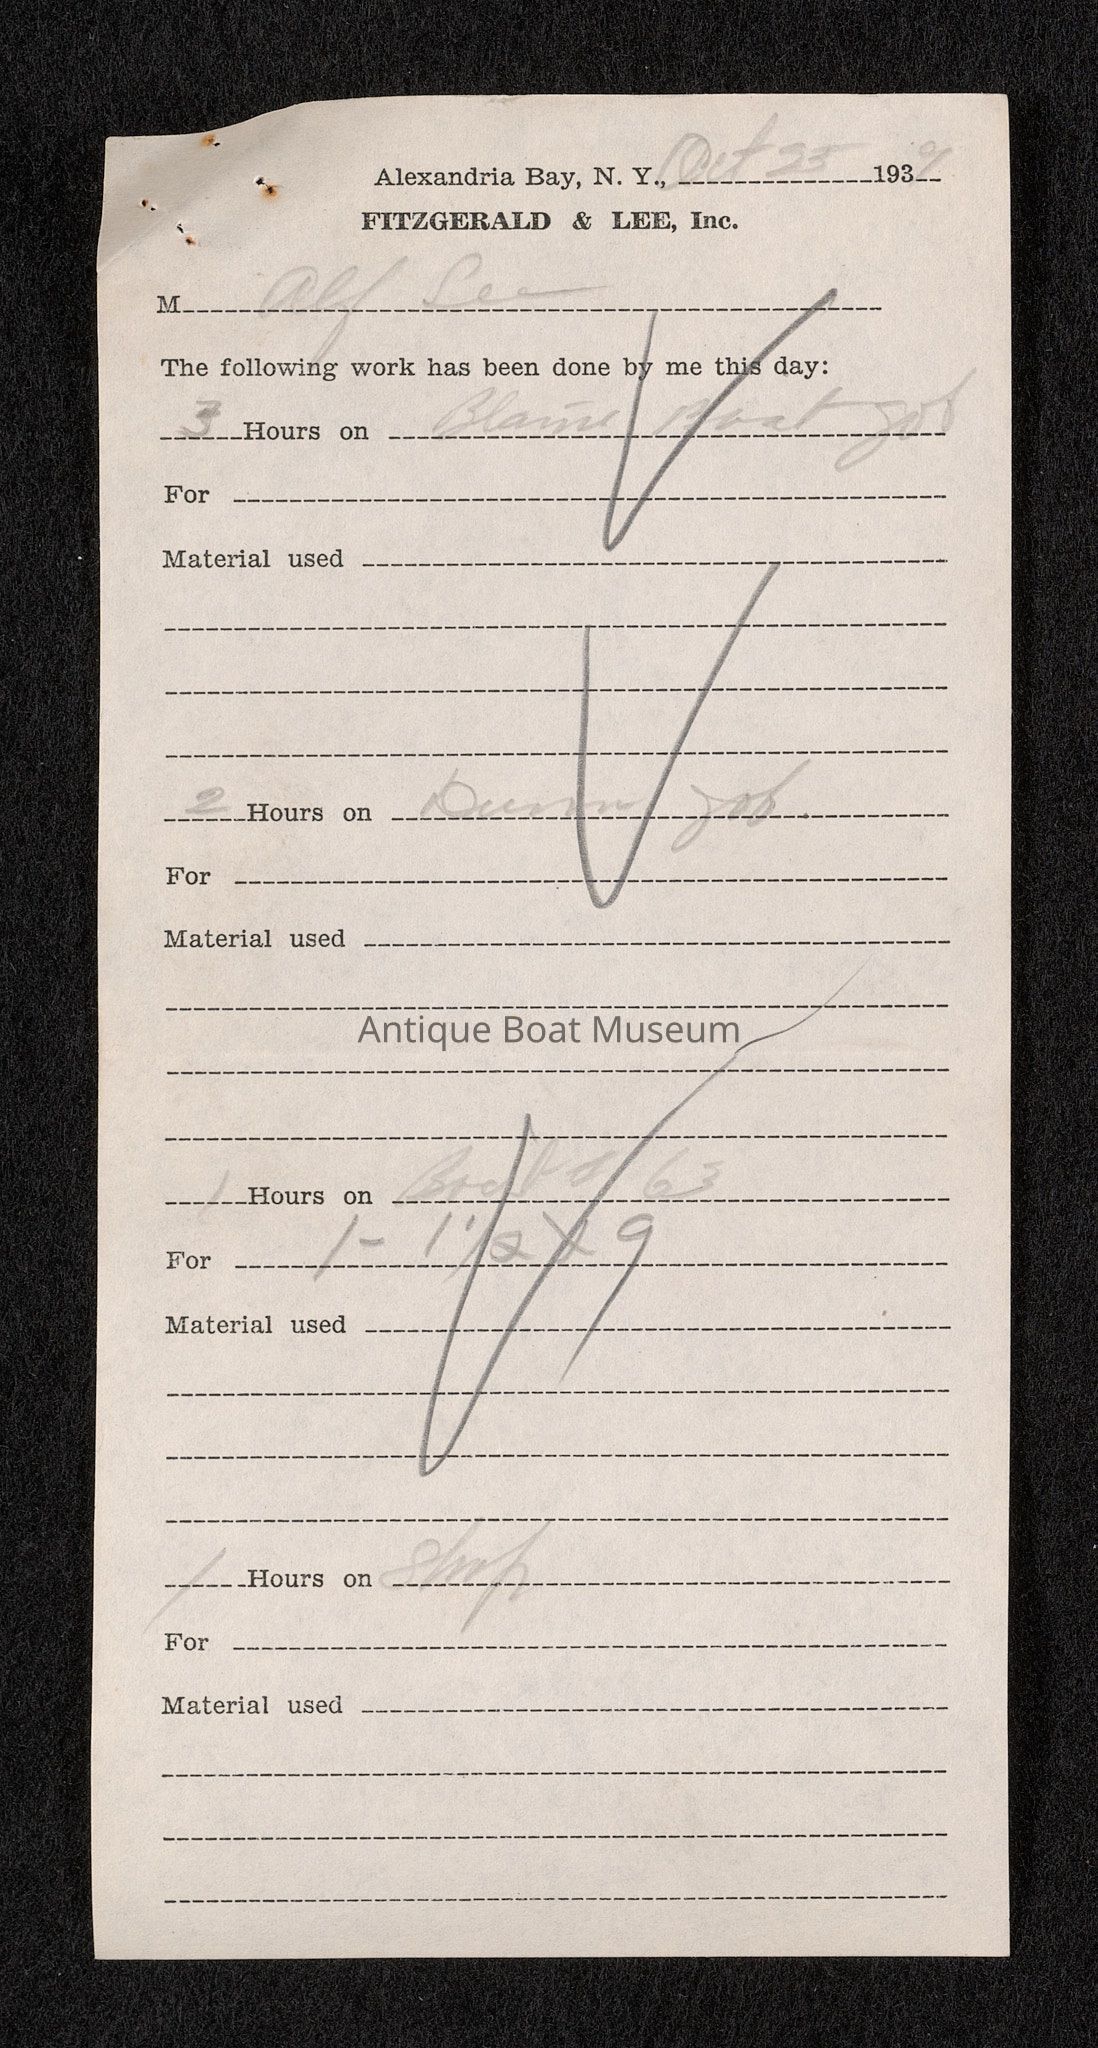 Alexandria Bay, N. Y., Oct 25 1939
FITZGERALD & LEE, Inc.
M Alf Lee
The following work has been done by me this day:
3 Hours on Blaine Boat job
For
Material used
2 Hours on Dunn job.
For
Material used
Antique Boat Museum
1 Hours on Boat # 63
For 1 - 1 1/2 X 9
Material used
1 Hours on Shop
For
Material used